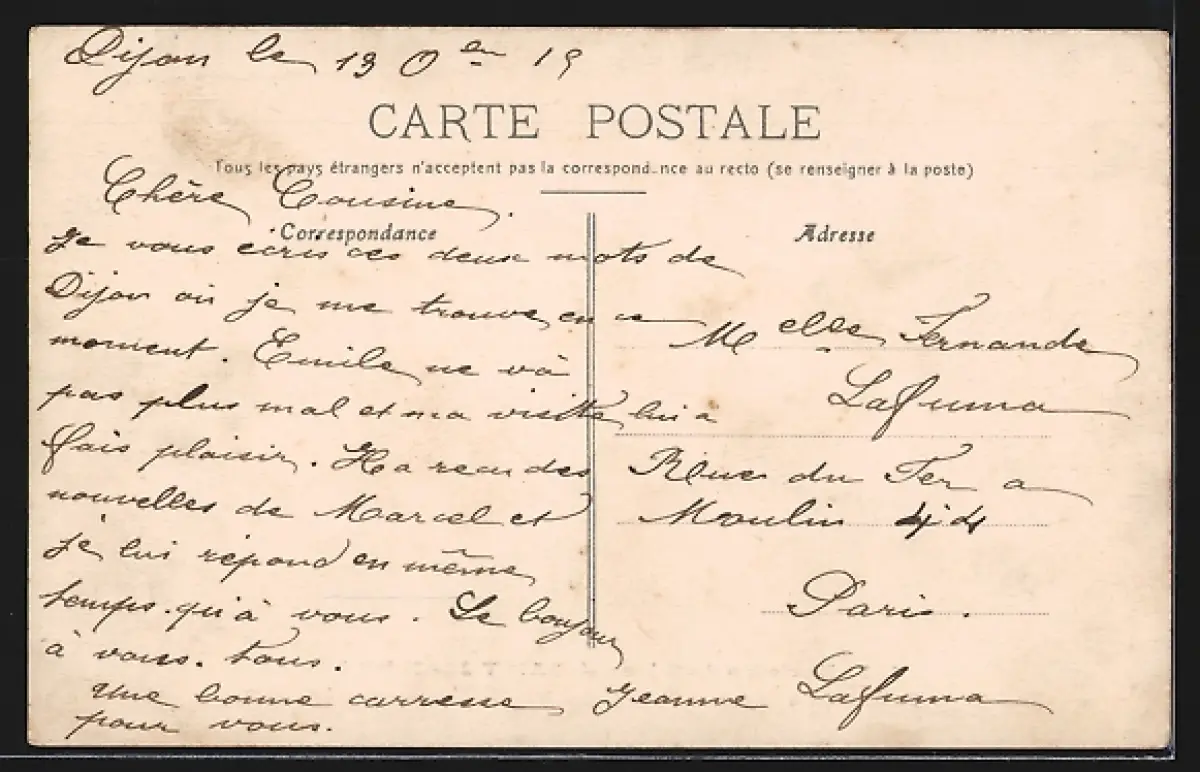 Dijon le 13 19
CARTE POSTALE
Tous les pays étrangers n'acceptent pas la correspond nce au recto (se renseigner à la poste)
Chère Cousine.
Correspondance
Je vous écris ces deux mots de
Dijon où je me trouve en ce
moment. Emile ne và
pas plus mal et ma visite lui a
fais plaisir. Il a recu des
nouvelles de Marcel et
je lui répond en même
temps qu'à vous. Le bonjour
à vous. tous.
Une bonne carresse
pour vous.
Jeanne Lafuma
Adresse
Melle Fernande
Lafuma
Rue du Fer a
Moulin 44
Paris.